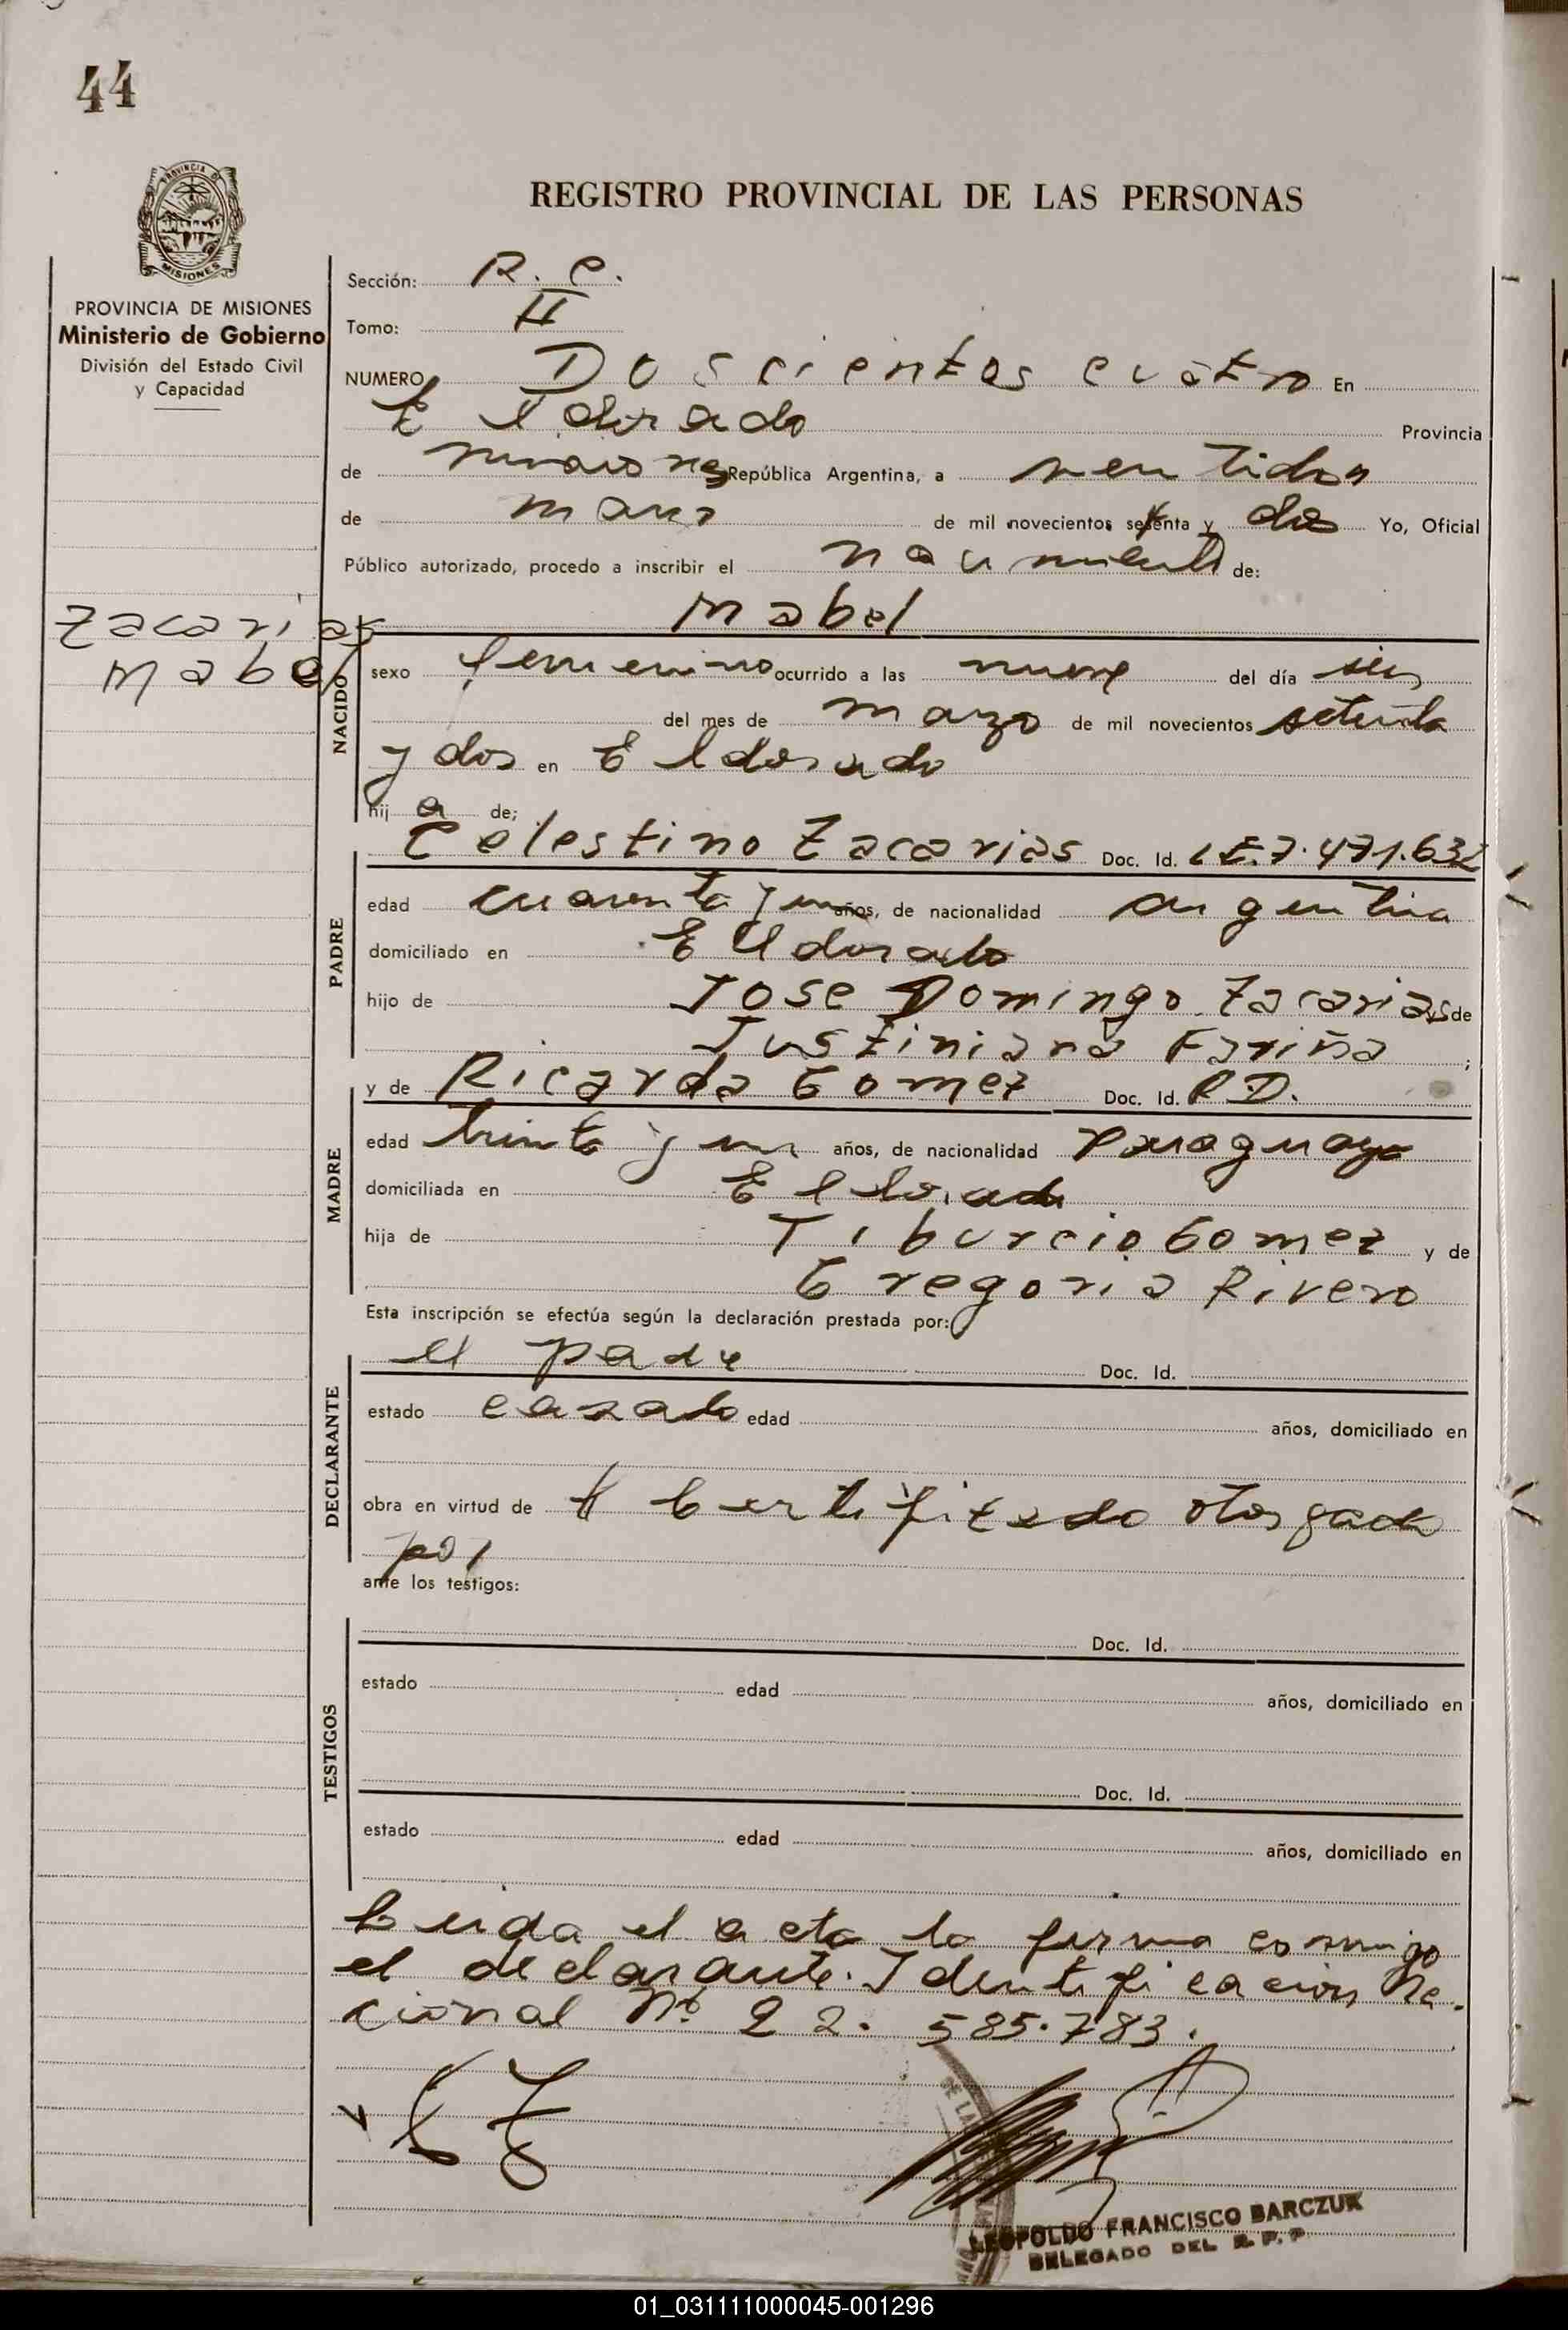 44
PROVINCIA DE
MISIONES
PROVINCIA DE MISIONES
Ministerio de Gobierno
División del Estado Civil
y Capacidad
REGISTRO PROVINCIAL DE LAS PERSONAS
Sección: R. C.
Tomo: II
NUMERO Doscientos cuatro En
Eldorado Provincia
de misiones República Argentina, a veintidos
de marzo de mil novecientos setenta y dos Yo, Oficial
Público autorizado, procedo a inscribir el nacimiento de:
Zacarias
Mabel
Mabel
NACIDO
sexo femenino ocurrido a las nueve del día seis
del mes de marzo de mil novecientos setenta
y dos en Eldorado
hij a de;
Celestino Zacarias Doc. Id. L.E.7.471.632
PADRE
edad cuarenta y un años, de nacionalidad argentina
domiciliado en Eldorado
hijo de Jose Domingo Zacarias y de
Justiniana Fariña ;
y de Ricarda Gomez Doc. Id.
MADRE
edad treinta y un años, de nacionalidad paraguaya
domiciliada en Eldorado
hija de Tiburcio Gomez y de
Gregoria Rivero
Esta inscripción se efectúa según la declaración prestada por:
el padre Doc. Id.
DECLARANTE
estado casado edad años, domiciliado en
obra en virtud de Certificado otorgado
por
ante los testigos:
Doc. Id.
TESTIGOS
estado edad años, domiciliado en
Doc. Id.
estado edad años, domiciliado en
Leida el acta la firma conmigo
el declarante. Identificacion Na-
cional Nº 22.585.783.
LEOPOLDO FRANCISCO BARCZUK
DELEGADO DEL R. P. P
01_031111000045-001296